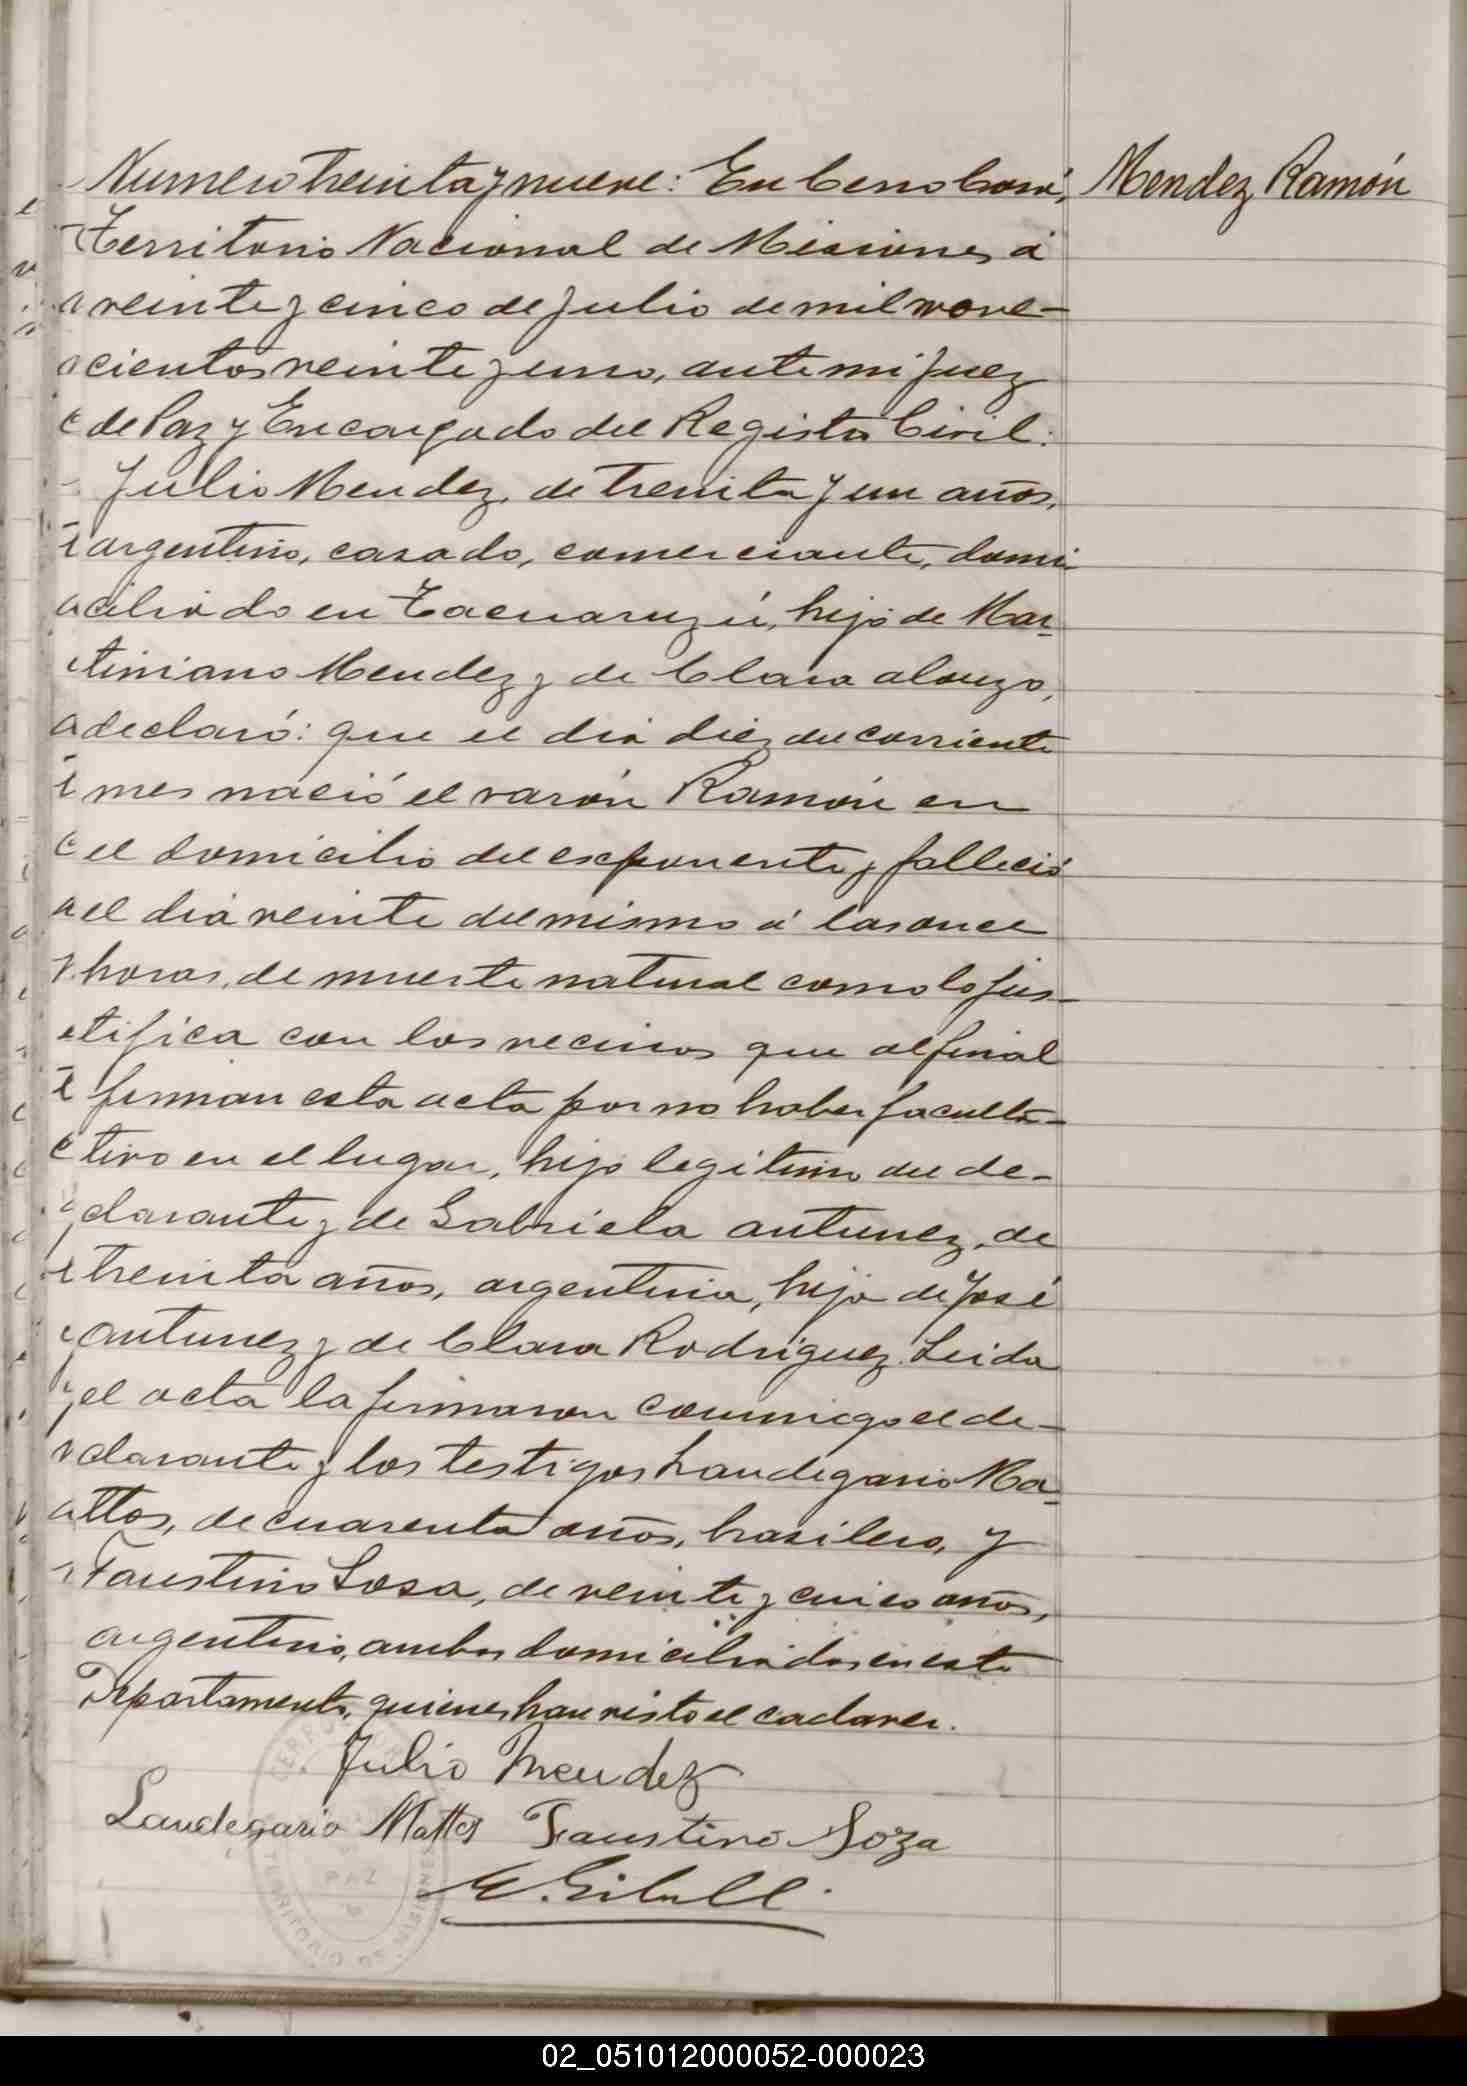 Numero treinta y nueve: En Cerro Corá,
Mendez Ramón
Territorio Nacional de Misiones á
veinte y cinco de Julio de mil nove-
cientos veinte y uno, ante mi Juez
de Paz y Encargado del Registro Civil:
Julio Mendez, de treinta y un años,
argentino, casado, comerciante, domi
ciliado en Tacuaruzú, hijo de Mar-
tiniano Mendez y de Clara alonzo,
declaró: que el dia diez del corriente
mes nació el varón Ramón en
el domicilio del exponente y falleció
el dia veinte del mismo á las once
horas, de muerte natural como lo jus-
tifica con los vecinos que al final
firman esta acta por no haber faculta-
tivo en el lugar, hijo legitimo del de-
clarante y de Gabriela antunez, de
treinta años, argentina, hija de José
antunez y de Clara Rodriguez. Leida
el acta la firmaron conmigo el de-
clarante y los testigos Laudegario Ma-
ttos, de cuarenta años, brasilero, y
Faustino Sosa, de veinte y cinco años,
argentino, ambos domiciliados en este
Departamento, quienes han visto el cadaver.
Julio Mendez
Laudegario Mattos Faustino Soza
PAZ
TERRITORIO DE MISIONES
02_051012000052-000023